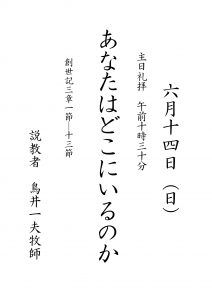 六月十四日（日）
主日礼拝　午前十時三十分
あなたはどこにいるのか
創世記三章一節―十三節
説教者　鳥井一夫牧師